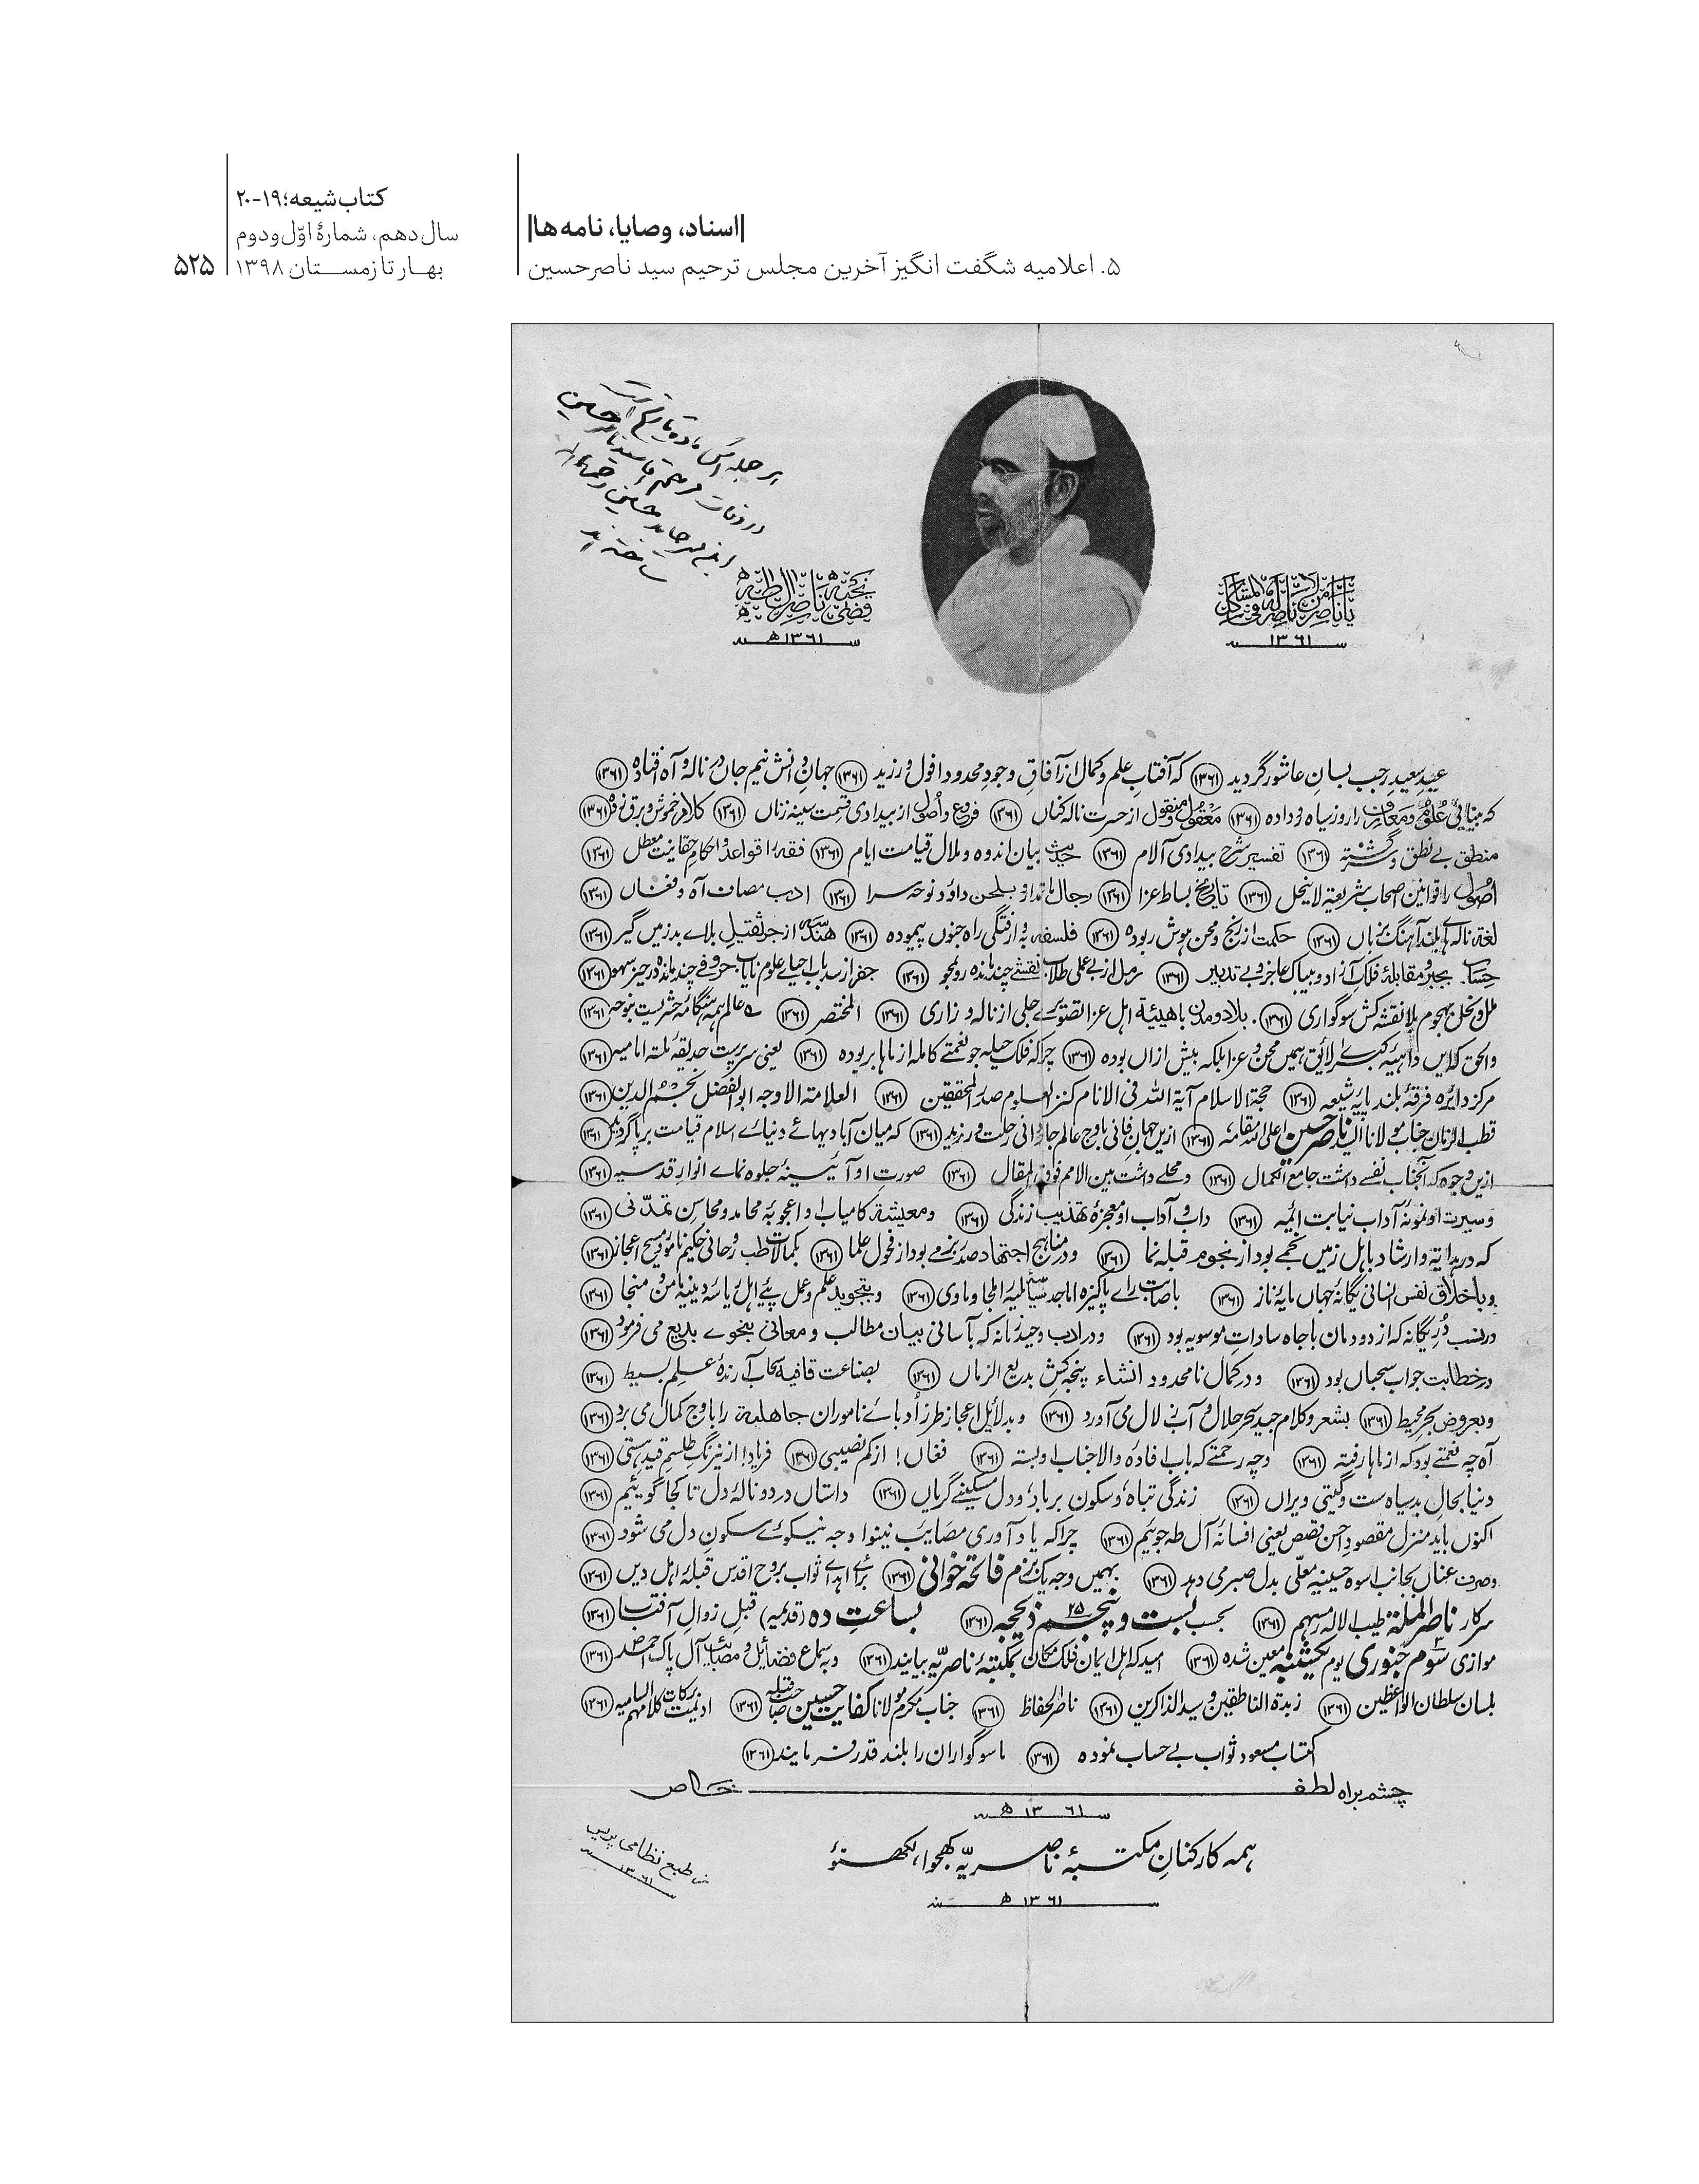 کتاب شیعه؛ ۱۹-۲۰
سال دهم، شمارهٔ اوّل و دوم
بهار تا زمستان ۱۳۹۸
۵۲۵
|اسناد، وصایا، نامه‌ها|
۵. اعلامیه شگفت انگیز آخرین مجلس ترحیم سید ناصرحسین
۱۳۶۱
۱۳۶۱ھ
عید سعید رجب بسانِ عاشور گردید ۱۳۶۱ که آفتابِ علم و کمال از آفاقِ وجودِ محدود افول ورزید ۱۳۶۱ جهانِ دانش نیم جاں در نالہ و آہ افتادہ ۱۳۶۱
کہ بینائیِ علوم و معارف را روز سیاہ رو دادہ ۱۳۶۱ معقول و منقول از حسرت نالہ کناں ۱۳۶۱ فروع و اُصول از بیدادی قسمت سینہ زناں ۱۳۶۱ کلام خموش و برق
منطق بے نطق و ۱۳۶۱ تفسیر شرح بیدادی آلام ۱۳۶۱ حدیث بیان اندوہ و ملال قیامت ایام ۱۳۶۱ فقہ را قواعد و احکامِ حقانیت معطل ۱۳۶۱
اُصول را قوانین اصحاب شریعۃ لاینحل ۱۳۶۱ تاریخ بساط عزا ۱۳۶۱ رجال بلحن داؤد نوحہ سرا ۱۳۶۱ ادب مصاف آہ و فغاں ۱۳۶۱
لغۃ نالہ ہائے بلند آہنگ بزباں ۱۳۶۱ حکمت از رنج و محن ہوش ربودہ ۱۳۶۱ فلسفہ بہ وارفتگی راہ جنوں پیمودہ ۱۳۶۱ هندسہ از جر ثقیل بلاے بد زمیں گیر ۱۳۶۱
حساب بجبر و مقابلۂ فلک آزاد و بیباک عاجز و بے تدبیر ۱۳۶۱ رمل از بے عملی طلاب نقشے چند ماندہ رو بمحو ۱۳۶۱ جفر از سد باب احیاے علوم نایاب حروفے چند ماندہ در حیز سہو ۱۳۶۱
ملل و نحل بہجوم بلا نقشہ کش سوگواری ۱۳۶۱ بلاد و مدن باهیئۃ اہل عزا تصویرے جلی از نالہ و زاری ۱۳۶۱ المختصر ۱۳۶۱ عالم ہمہ ہنگامۂ حشریست بنوحہ ۱۳۶۱
والحق کہ ایں داہیۂ کبرےٰ لائق ہمیں محن و عزا بلکہ بیش ازاں بودہ ۱۳۶۱ چرا کہ فلک حیلہ جو نعمتے کاملہ از ماہا بر بودہ ۱۳۶۱ یعنی سرپرست حدیقۂ ملۃ امامیہ ۱۳۶۱
مرکز دائرہ فرقۂ بلند پایہ شیعہ ۱۳۶۱ حجۃ الاسلام آیۃ اللہ فی الانام کنز العلوم صدر المحققین ۱۳۶۱ العلامۃ الاوجہ ابوالفضل نجم الدین ۱۳۶۱
قطب الزمان جناب مولانا السید ناصر حسین اعلی اللہ مقامہ ۱۳۶۱ ازیں جہان فانی باوج عالم جاودانی رحلت ورزید ۱۳۶۱ کہ میان آبادیہائے دنیاے اسلام قیامت برپا گردید ۱۳۶۱
ازیں وجوہ کہ آنجناب نفسے داشت جامع الکمال ۱۳۶۱ و محلے داشت بین الامم فوق المقال ۱۳۶۱ صورتِ او آئینۂ جلوہ نماے انوارِ قدسیہ ۱۳۶۱
و سیرت او نمونۂ آداب نیابت ائمہ ۱۳۶۱ داب و آداب او معجزۂ تہذیب زندگی ۱۳۶۱ و معیشۃ کامیاب او اعجوبۂ محامد و محاسن تمدّنی ۱۳۶۱
کہ در ہدایۃ و ارشاد باہل زمیں نجمے بود از نجوم قبلہ نما ۱۳۶۱ و در مناہج اجتہاد صدر بزمے بود از فحول علما ۱۳۶۱ بکمالات طب روحانی حکیم نامور مسیح اعجاز ۱۳۶۱
و باخلاق نفس انسانی یگانۂ جہاں مایۂ ناز ۱۳۶۱ باصابت راے پاکیزہ اماجد ملجا و ماوی ۱۳۶۱ و بتجوید علم و عمل پئے اہل ریاسۃ دینیہ مامن و منجا ۱۳۶۱
در نسب دُرِ یگانہ کہ از دودمان باجاہ سادات موسویہ بود ۱۳۶۱ و در ادب وحید زمانہ کہ بآسانی بیان مطالب و معانی بنحوے بدیع می فرمود ۱۳۶۱
در خطابت جواب سحباں بود ۱۳۶۱ و در کمال نامحدود انشاء پنجہ کشِ بدیع الزماں ۱۳۶۱ بصناعت قافیہ آرندۂ علم بسیط ۱۳۶۱
و بعروض بحرِ محیط ۱۳۶۱ بشعر و کلام جید سحرِ حلال و آبِ زلال می آورد ۱۳۶۱ و بدلائلِ اعجاز طرزِ اُدباے ناموران جاهلیۃ را باوجِ کمال می برد ۱۳۶۱
آہ چہ نعمتے بود کہ از ماہا رفتہ ۱۳۶۱ و چہ رحمتے کہ باب افادۂ والا جناب او بستہ ۱۳۶۱ فغاں! از کم نصیبی ۱۳۶۱ فریاد! از نیرنگِ طلسمِ قیدِ ہستی ۱۳۶۱
دنیا بحال بد سیاہ ست و گیتی ویراں ۱۳۶۱ زندگی تباہ، و سکون برباد، و دل مسکینے گریاں ۱۳۶۱ داستاں درد و نالۂ دل تا کجا گوئیم ۱۳۶۱
اکنوں باید منزل مقصود احسن قصص یعنی افسانۂ آل طہ جوئیم ۱۳۶۱ چرا کہ یاد آوری مصایب نینوا وجہ نیکوے سکونِ دل می شود ۱۳۶۱
و صرف عناں بجانب اسوہ حسینیہ معلّی بدل صبر می دہد ۱۳۶۱ بہمیں وجہ یک بزم فاتحہ خوانی ۱۳۶۱ براے اہداے ثواب بروح اقدس قبلۂ اہل دیں ۱۳۶۱
سرکار ناصر الملۃ طیب الالہ رمسہم ۱۳۶۱ بحسب بست و پنجم ۲۵ ذیحجہ ۱۳۶۱ بساعتِ دہ (قدیمہ) قبلِ زوالِ آفتاب ۱۳۶۱
موازی سوم ۳ جنوری یوم یکشنبہ معین شدہ ۱۳۶۱ امید کہ اہل ایمان فلک مکان بمکتبۂ ناصریّہ بیایند ۱۳۶۱ و بہ سماع فضائل و مصائب آل پاک احمد ۱۳۶۱
بلسان سلطان الواعظین ۱۳۶۱ زبدۃ الناطقین و سید الذاکرین ۱۳۶۱ ناصر الحفاظ ۱۳۶۱ جناب مکرم مولانا کفایت حسین صاحب قبلہ ۱۳۶۱ ادیمت برکات کلامہم السامیہ ۱۳۶۱
اکتساب مسعود ثواب بے حساب نمودہ ۱۳۶۱ ما سوگواران را بلند قدر فرمایند ۱۳۶۱
چشم براہ لطف خاص
۱۳۶۱ ھ
ہمہ کارکنانِ مکتبۂ ناصریّہ کھجوا، لکھنؤ
۱۳۶۱ ھ
طبع نظامی پریس
۱۳۶۱